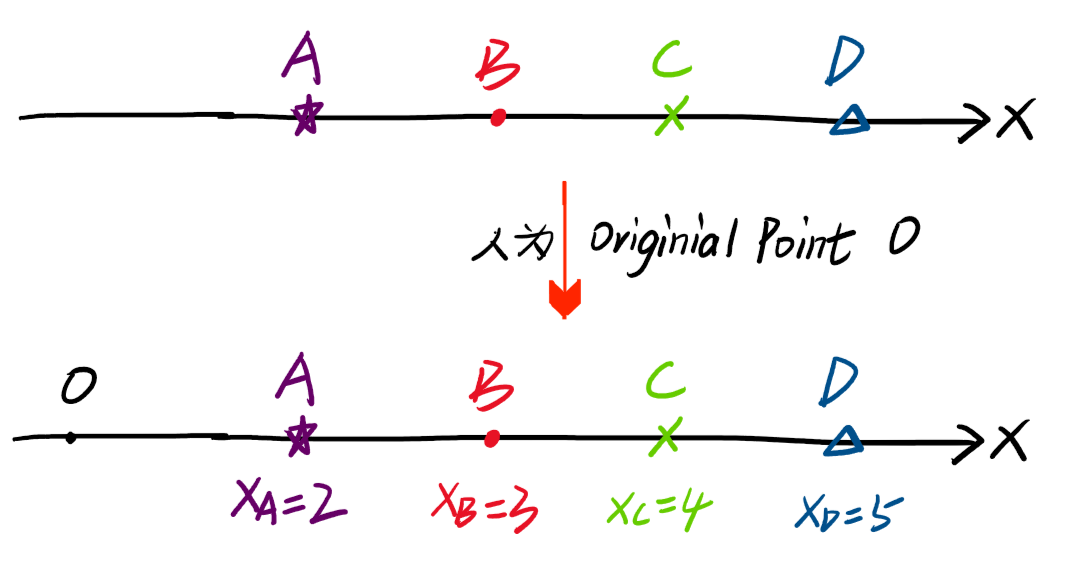 A B C D
X
人为 Originial Point O
O A B C D
X
XA=2 XB=3 XC=4 XD=5